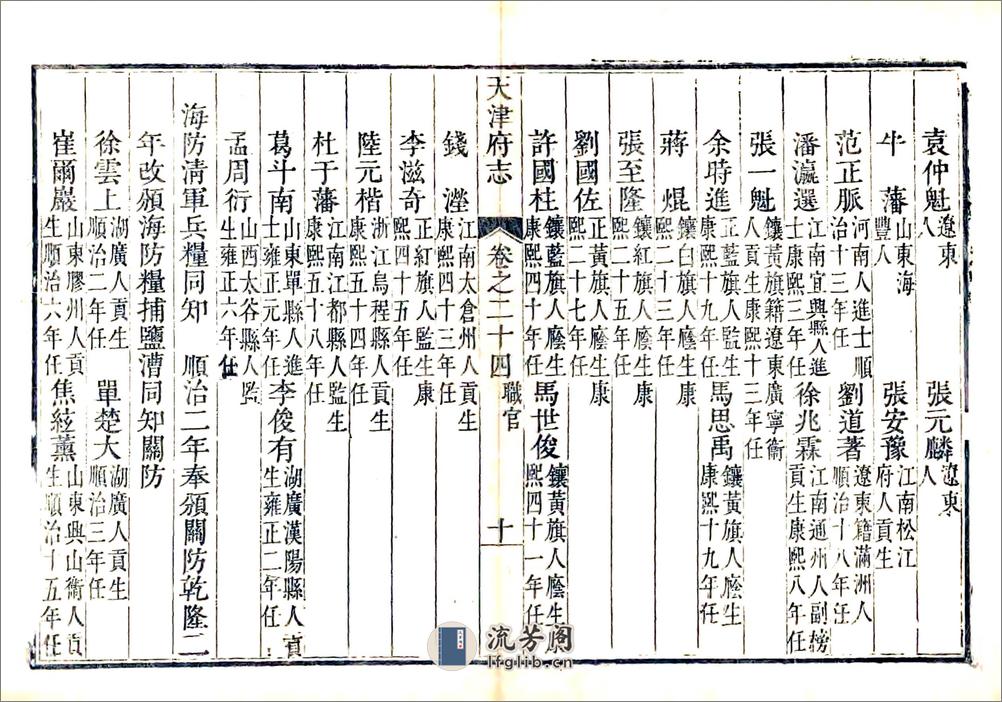 袁仲魁 遼東人 張元麟 遼東人
牛藩 山東海豐人 張安豫 江南松江府人貢生
范正脈 河南人進士順治十三年任 劉道著 遼東籍滿洲人順治十八年任
潘瀛選 江南宜興縣人進士康熙三年任 徐兆霖 江南通州人副榜貢生康熙八年任
張一魁 鑲黃旗籍遼東廣寧衛人貢生康熙十三年任
余時進 正藍旗人監生康熙十九年任 馬思禹 鑲黃旗人廕生康熙十九年任
蔣焜 鑲白旗人廕生康熙二十三年任
張至隆 鑲紅旗人廕生康熙二十五年任
劉國佐 正黃旗人廕生康熙二十七年任
許國桂 鑲藍旗人廕生康熙四十年任 馬世俊 鑲黃旗人廕生康熙四十一年任
天津府志 卷之二十四 職官 十
錢瀅 江南太倉州人貢生康熙四十三年任
李滋奇 正紅旗人監生康熙四十五年任
陸元楷 浙江烏程縣人貢生康熙五十四年任
杜于藩 江南江都縣人監生康熙五十八年任
葛斗南 山東單縣人進士雍正元年任 李俊有 湖廣漢陽縣人貢生雍正二年任
孟周衍 山西太谷縣人監生雍正六年任
海防清軍兵糧同知 順治二年奉頒關防乾隆二
年改頒海防糧捕鹽漕同知關防
徐雲上 湖廣人貢生順治二年任 單楚大 湖廣人貢生順治三年任
崔爾嚴 山東膠州人貢生順治六年任 焦絃薰 山東興山衛人貢生順治十五年任
流芳阁
lfglib.cn